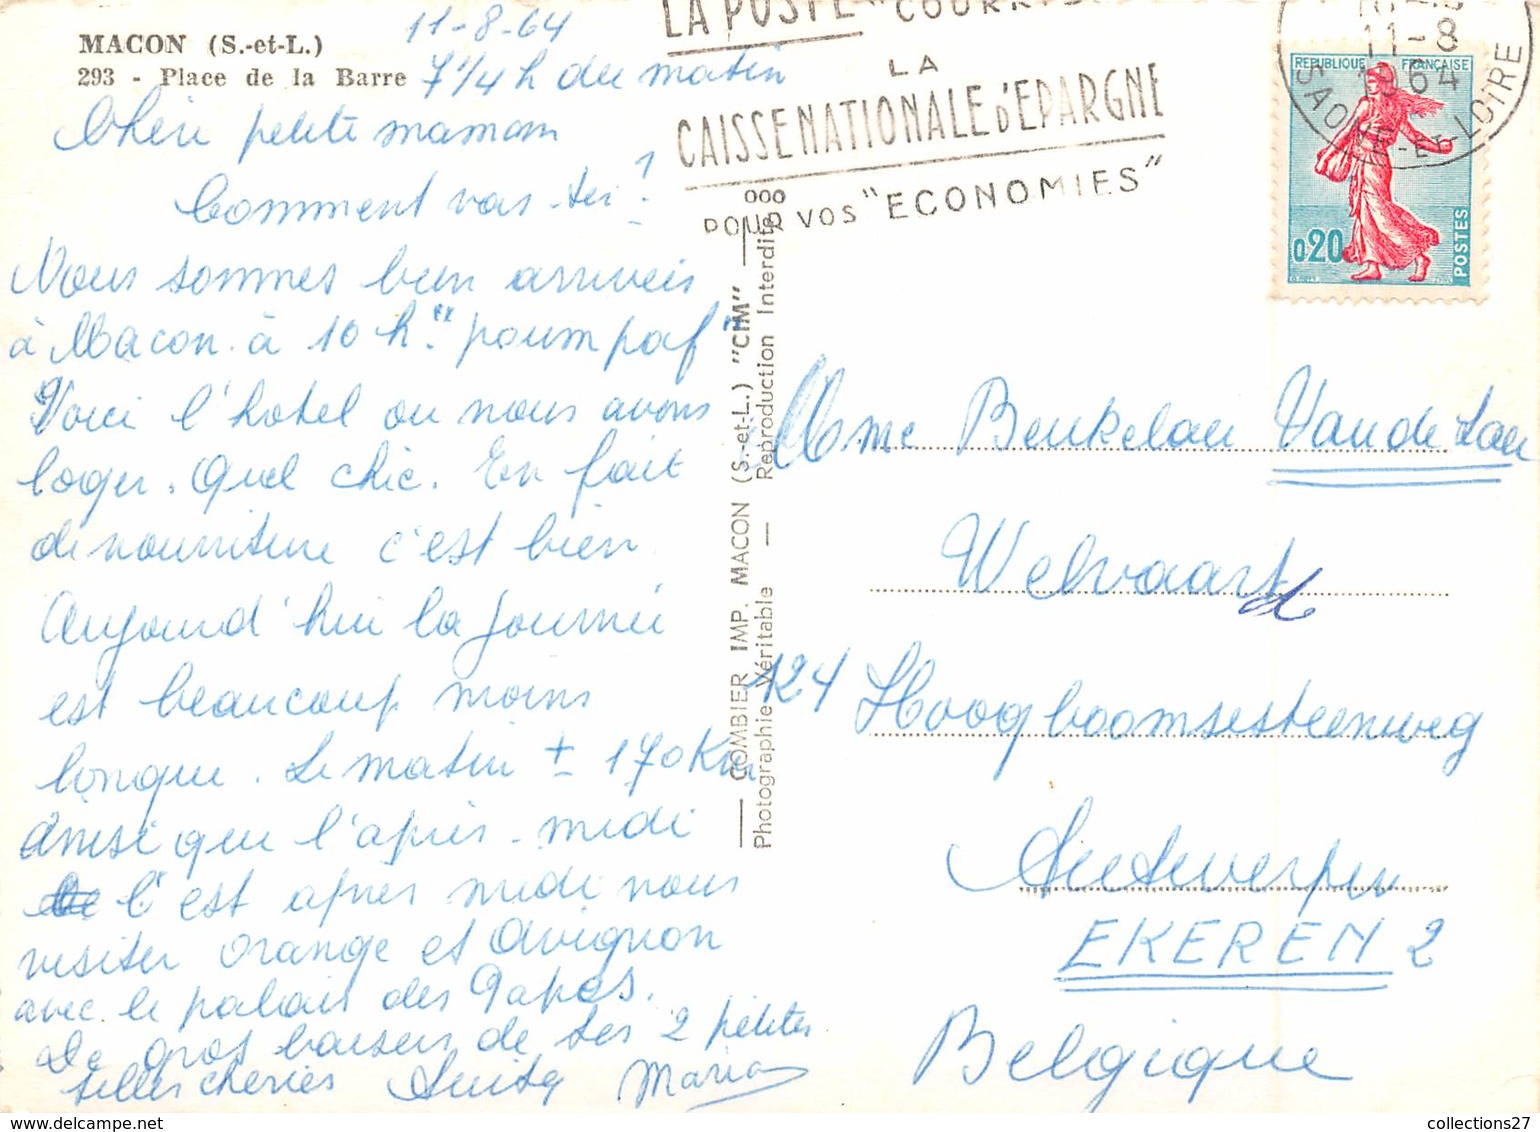 MACON (S.-et-L.)
293 - Place de la Barre
11-8-64
7 1/4 h du matin
Chéri petite maman
Comment vas-tu?
Nous sommes bien arriveis
à Macon à 10 h. "poum paf"
Voici l'hotel ou nous avons
loger. Quel chic. En fait
de nourriture c'est bien
Aujourd'hui la journéé
est beaucoup moins
longue. Le matin ± 170 Km
ainsi que l'après-midi
C'est apres midi nous
visiter Orange et Avignon
avec le palais des Papes.
De gros baisers de tes 2 petites
filles cheries Anita Maria
LA POSTE
LA
CAISSE NATIONALE d'EPARGNE
POUR VOS "ECONOMIES"
11-8
1964
SAONE-ET-LOIRE
REPUBLIQUE FRANÇAISE
0,20
POSTES
COMBIER IMP. MACON (S.-et-L.) "CIM"
Photographie Véritable — Reproduction Interdite
000
Mme Beukelau Vande Lau
Welvaart
124 Hoogboomsesteenweg
Antwerpen
EKEREN 2
Belgique
www.collections27